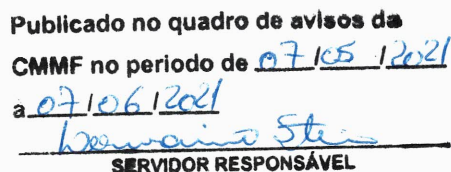 Publicado no quadro de avisos da
CMMF no periodo de 07/05/2021
a 07/06/2021
SERVIDOR RESPONSÁVEL